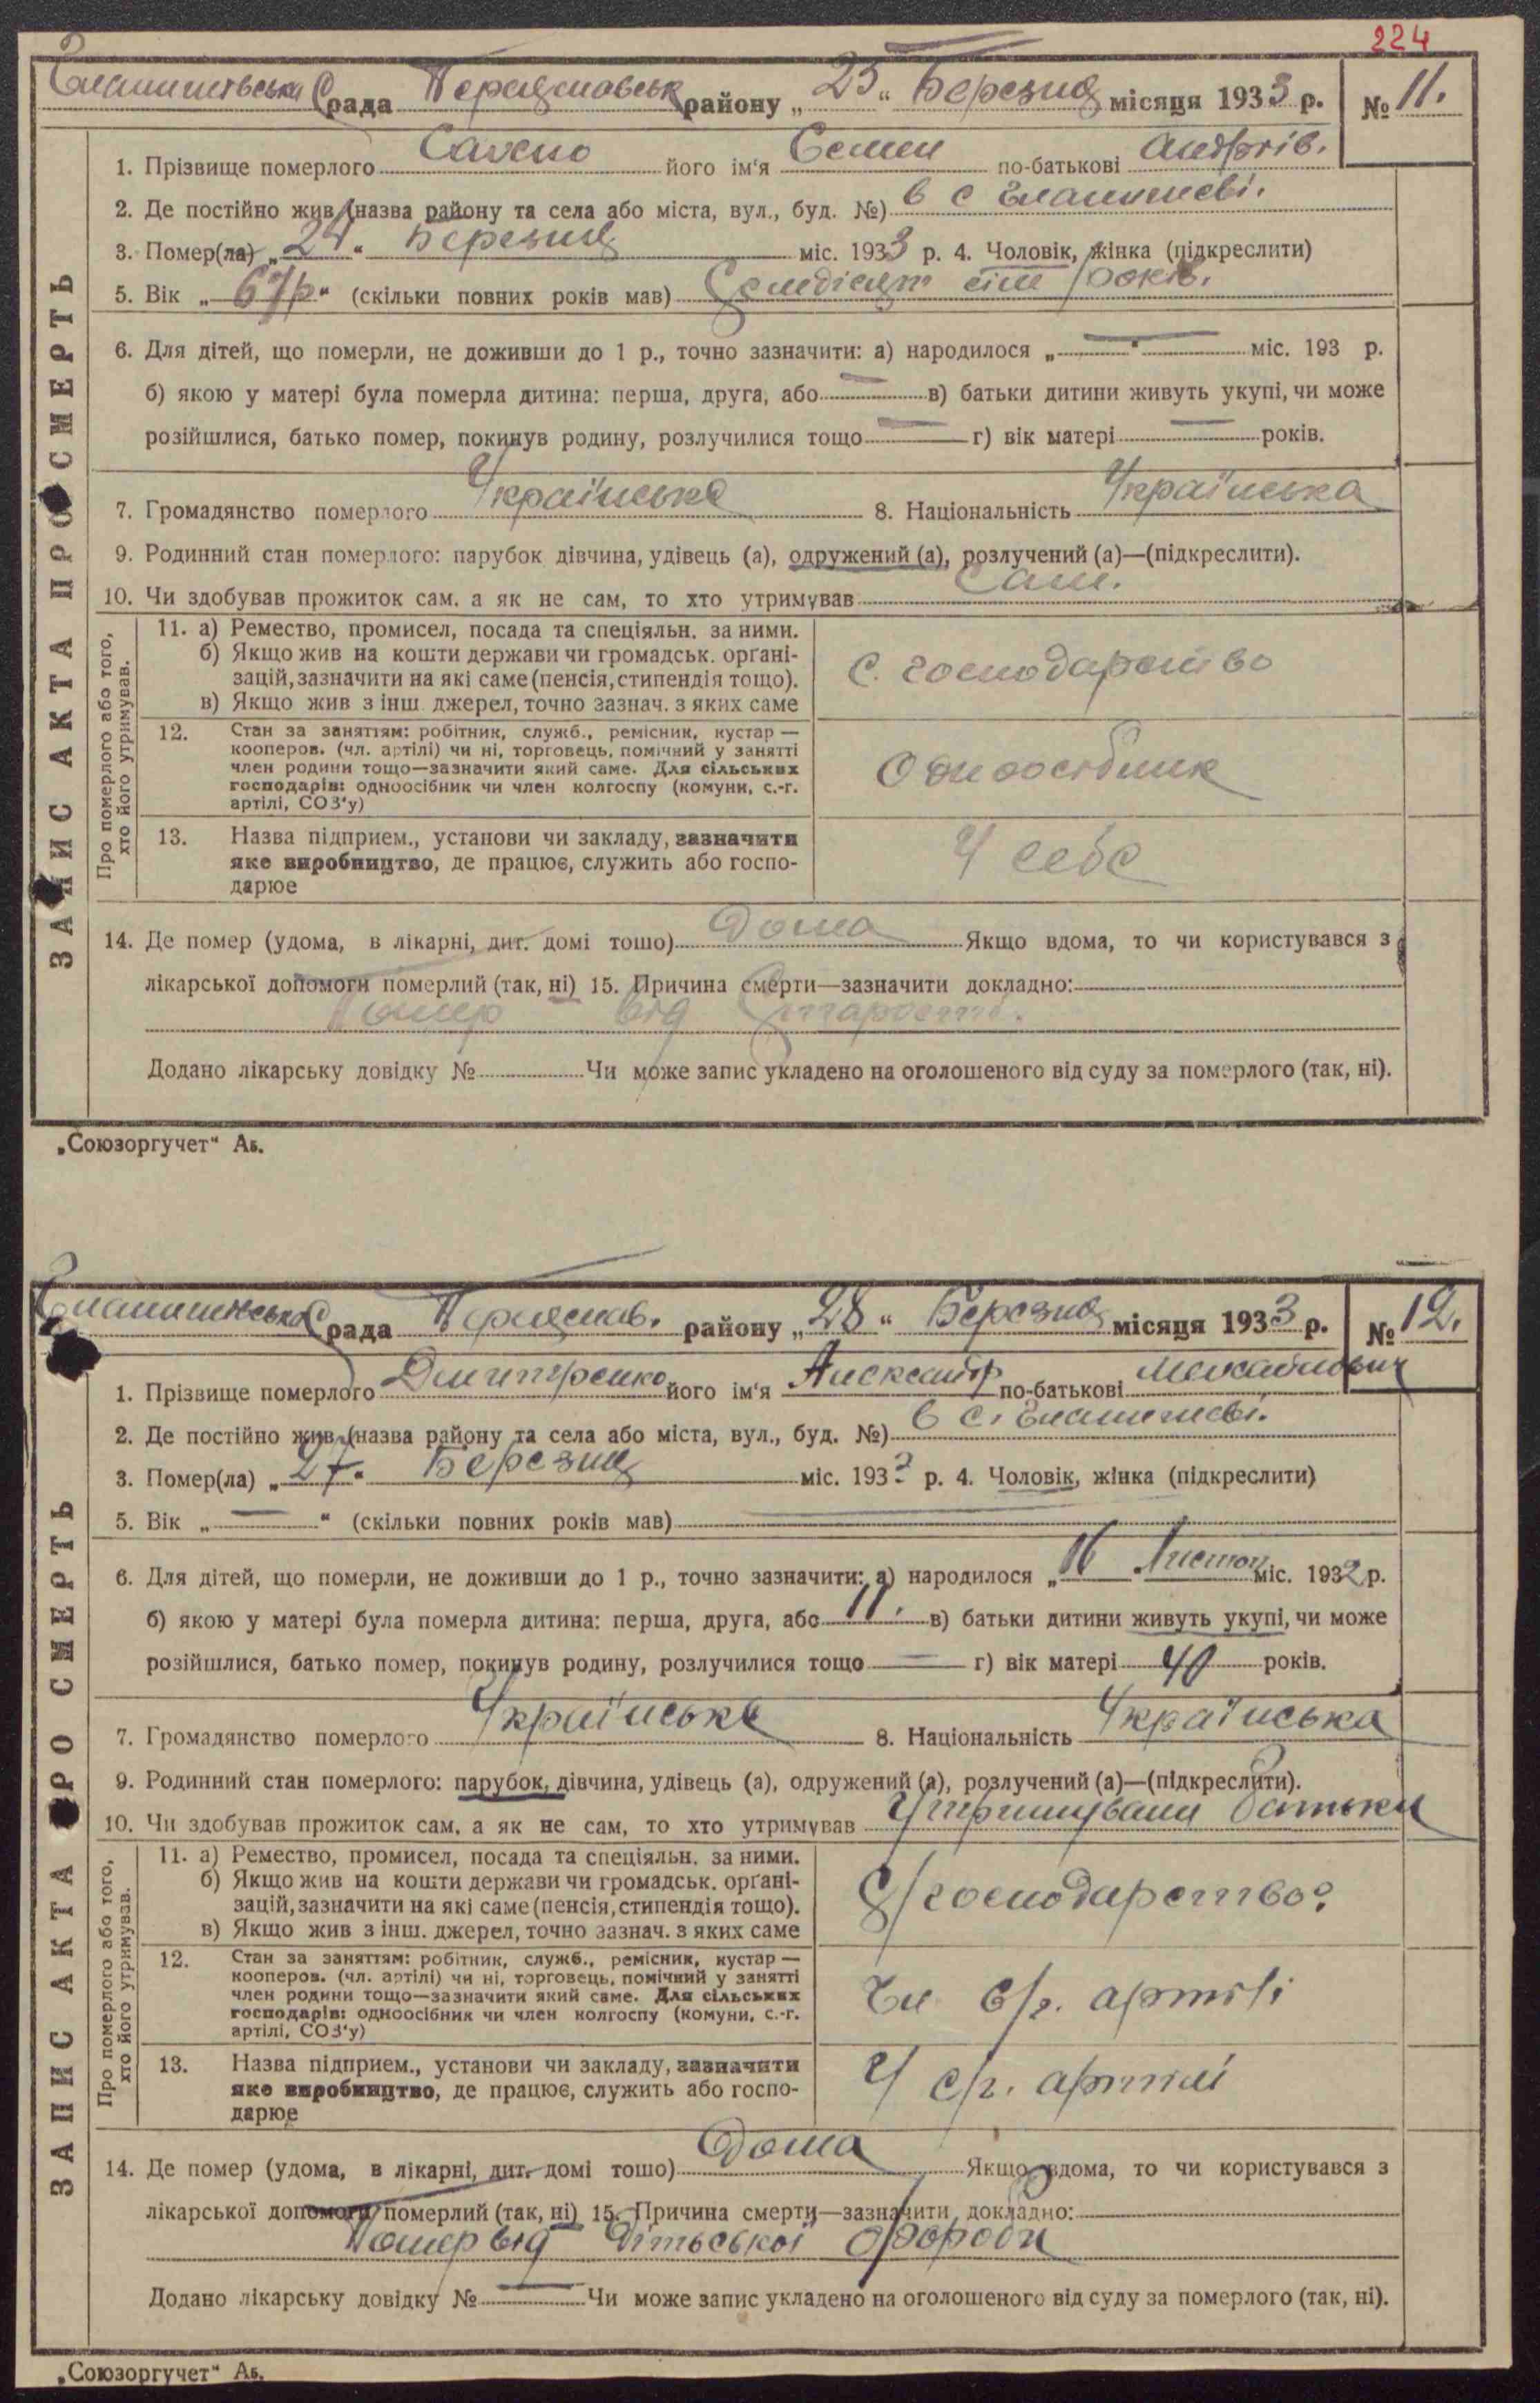 224
Сrада Переяславськ району „ 25 “ Березня місяця 1933 р. № 11.
1. Прізвище померлого його ім‘я Семен по-батькові Андрнів.
2. Де постійно жив (назва району та села або міста, вул., буд. №) в с
3. Помер(ла) „ 24 “ Березня міс. 1933 р. 4. Чоловік, жінка (підкреслити)
5. Вік „ 67р “ (скільки повних років мав) років.
6. Для дітей, що померли, не доживши до 1 р., точно зазначити: а) народилося „ — “ — міс. 193 р.
б) якою у матері була померла дитина: перша, друга, або — в) батьки дитини живуть укупі, чи може
розійшлися, батько помер, покинув родину, розлучилися тощо — г) вік матері — років.
7. Громадянство померлого Українське 8. Національність Українська
9. Родинний стан померлого: парубок дівчина, удівець (а), одружений (а), розлучений (а)—(підкреслити).
10. Чи здобував прожиток сам. а як не сам, то хто утримував Сам.
ЗАПИС АКТА ПРО СМЕРТЬ
Про померлого або того, хто його утримував.
11. а) Ремество, промисел, посада та спеціяльн. за ними.
б) Якщо жив на кошти держави чи громадськ. орґані-
зацій, зазначити на які саме (пенсія, стипендія тощо).
в) Якщо жив з інш. джерел, точно зазнач. з яких саме
С. господарство
12. Стан за заняттям: робітник, служб., ремісник, кустар —
кооперов. (чл. артілі) чи ні, торговець, помічний у занятті
член родини тощо—зазначити який саме. Для сільських
господарів: одноосібник чи член колгоспу (комуни, с.-г.
артілі, СОЗ‘у)
Одноосібник
13. Назва підприєм., установи чи закладу, зазначити
яке виробництво, де працює, служить або госпо-
дарює
У себе
14. Де помер (удома, в лікарні, дит. домі тошо) Дома Якщо вдома, то чи користувався з
лікарської допомоги померлий (так, ні) 15. Причина смерти—зазначити докладно:
Помер від Старости.
Додано лікарську довідку № Чи може запис укладено на оголошеного від суду за померлого (так, ні).
„Союзоргучет“ Аб.
Срада Переяслав. району „ 28 “ Березня місяця 1933 р. № 12.
1. Прізвище померлого Дмитренко його ім‘я Александр по-батькові Михайлович
2. Де постійно жив (назва району та села або міста, вул., буд. №) в с.
3. Помер(ла) „ 27 “ Березня міс. 1933 р. 4. Чоловік, жінка (підкреслити)
5. Вік „ — “ (скільки повних років мав) —
6. Для дітей, що померли, не доживши до 1 р., точно зазначити: а) народилося „ 16 Листоп міс. 1932 р.
б) якою у матері була померла дитина: перша, друга, або 11. в) батьки дитини живуть укупі, чи може
розійшлися, батько помер, покинув родину, розлучилися тощо — г) вік матері 40 років.
7. Громадянство померлого Українське 8. Національність Українська
9. Родинний стан померлого: парубок, дівчина, удівець (а), одружений (а), розлучений (а)—(підкреслити).
10. Чи здобував прожиток сам. а як не сам, то хто утримував Утримували батьки
ЗАПИС АКТА ПРО СМЕРТЬ
Про померлого або того, хто його утримував.
11. а) Ремество, промисел, посада та спеціяльн. за ними.
б) Якщо жив на кошти держави чи громадськ. орґані-
зацій, зазначити на які саме (пенсія, стипендія тощо).
в) Якщо жив з інш. джерел, точно зазнач. з яких саме
С/господарство
12. Стан за заняттям: робітник, служб., ремісник, кустар —
кооперов. (чл. артілі) чи ні, торговець, помічний у занятті
член родини тощо—зазначити який саме. Для сільських
господарів: одноосібник чи член колгоспу (комуни, с.-г.
артілі, СОЗ‘у)
Чл с/г. артілі
13. Назва підприєм., установи чи закладу, зазначити
яке виробництво, де працює, служить або госпо-
дарює
У с/г. артілі
14. Де помер (удома, в лікарні, дит. домі тошо) Дома Якщо вдома, то чи користувався з
лікарської допомоги померлий (так, ні) 15. Причина смерти—зазначити докладно:
Помер від
Додано лікарську довідку № — Чи може запис укладено на оголошеного від суду за померлого (так, ні).
„Союзоргучет“ Аб.